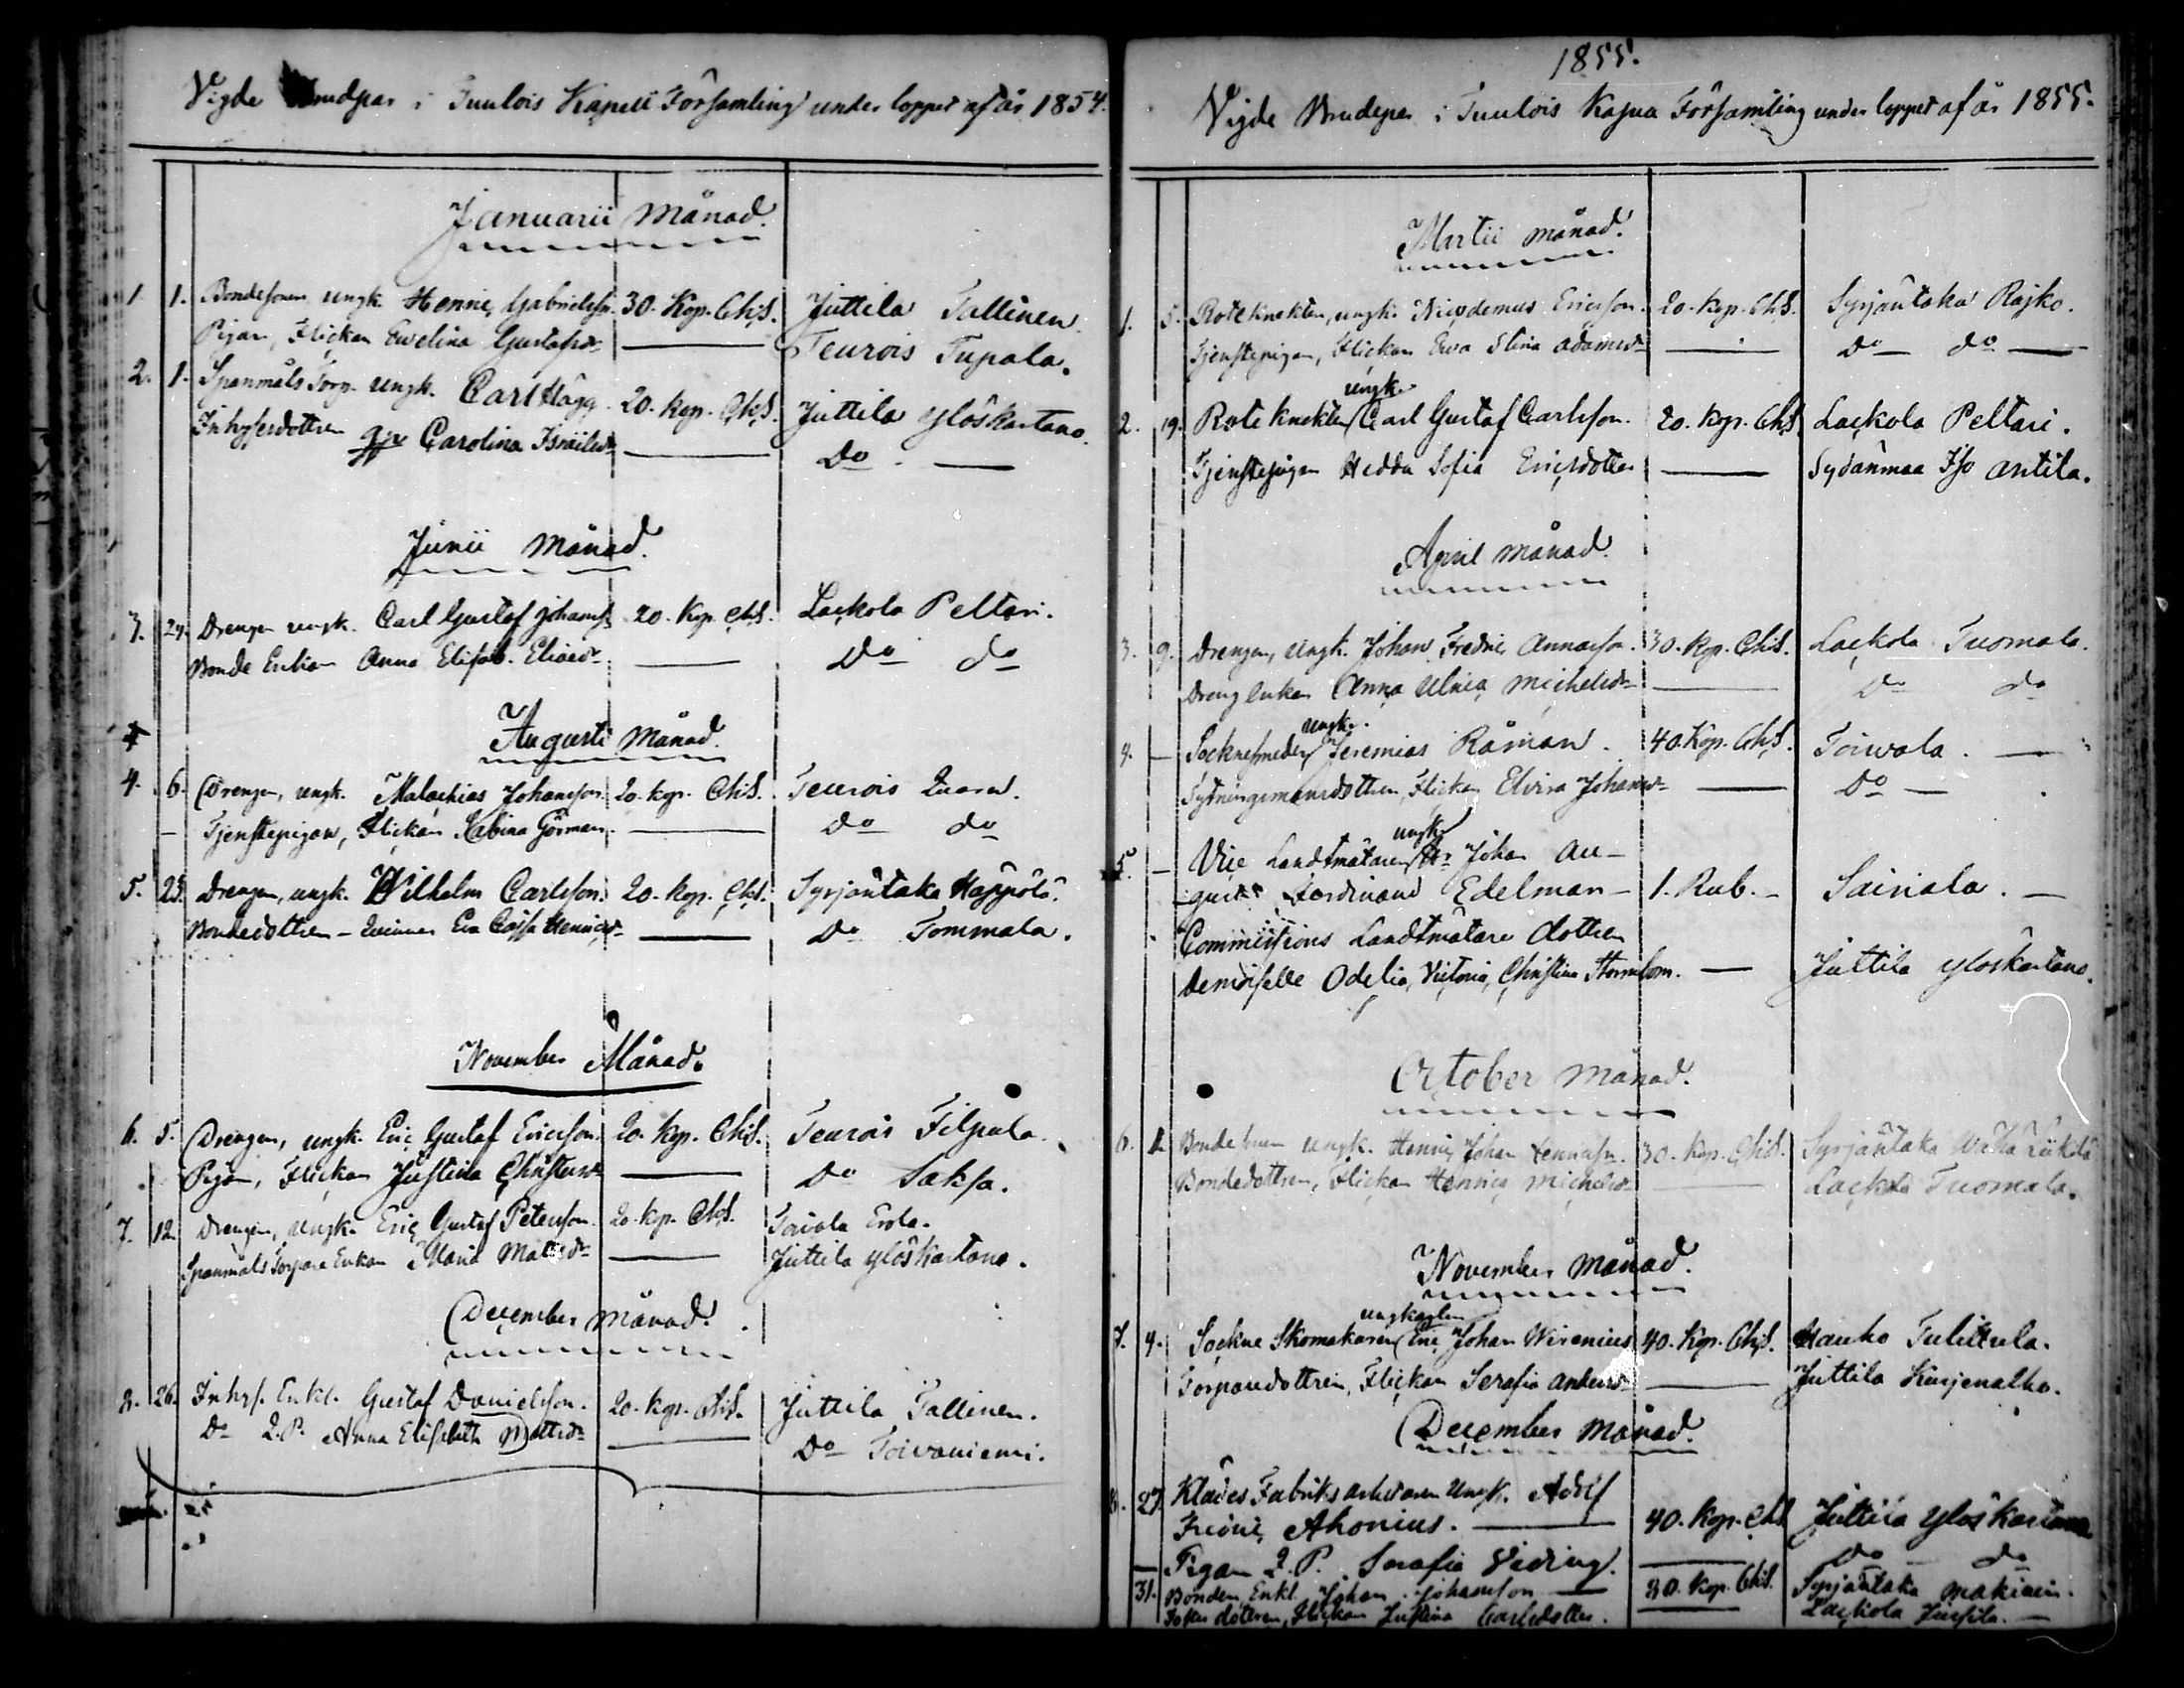 Vigde Brudpar i Tuulois Kapell Församling under loppet af år 1854.
Januarii Månad.
1. 1. Bondesonen ungk. Henric Gabrielss. 30. Kop. Ch.S. Juttila Tallinen
Pigan, Flickan Ewelina Gustafsdr Teurois Tupala.
2. 1. Spanmåls Torp. ungk. Carl Hägg. 20. Kop. Ch.S. Juttila Ylöskartano.
Inhysesdottren Carolina Israilsdr Do
Junii Månad.
3. 24. Drengen ungk. Carl Gustaf Johanss. 20. Kop. Ch.S. Lackola Peltari.
Bonde Enkan Anna Elisab. Eliaedr Do do
Augusti Månad.
4. 6. Drengen, ungk. Malachias Johansson. 20. Kop. Ch.S. Teurois
Tjenstepigan, Flickan Sabina Görman. Do do
5. 23. Drengen, ungk. Wilhelm Carlsson. 20. Kop. Ch.S. Syrjäntaka Häppölä.
Bondedottren Qvinnan Eva Caisa Henricsdr Do Tommala.
November Månad.
6. 5. Drengen, ungk. Eric Gustaf Ericsson. 20. Kop. Ch.S. Teurois Filpula.
Pigan, Flickan Justina Christersdr Do Saksa.
7. 12. Drengen, ungk. Eric Gustaf Petersson. 20. Kop. Ch.S. Erola.
Spanmåls Torpare Enkan Maria Mattsdr Juttila Ylöskartano.
December Månad.
8. 26. Inhys. Enkl. Gustaf Danielsson. 20. Kop. Ch.S. Juttila Tallinen.
Do Q.P. Anna Elisabeth Mattsdr Do Toivoniemi.
1855.
Vigde Brudepar i Tuulois Kapell Församling under loppet af år 1855.
Martii månad.
1. 5. Rote knekten, ungk. Nicodemus Ericsson. 20. Kop. Ch.S. Syrjäntaka Rajko.
Tjenstepigan, Flickan Ewa Stina Adamsdr Do do
ungk.
2. 19. Rote knekten Carl Gustaf Carlsson. 20. Kop. Ch.S. Lackola Peltari.
Tjenstepigan Hedda Sofia Ericsdotter Sydänmaa Iso Antila.
April månad.
3. 9. Drengen, ungk. Johan Fredric Annaeson. 30. Kop. Ch.S. Lackola Tuomala.
Dreng Enkan Anna Ulrica Michelsdr Do do
ungk.
4. — Socknesmeden Jeremias Råman. 40. Kop. Ch.S. Toivola.
Fjerdningsmansdottren, Flickan Elvira Johansdr Do
ungk.
5. — Vice Landtmätaren Hr Johan Au-
gust Ferdinand Edelman 1. Rub. Sairiala.
Commissions Landtmätare dottren
Demoiselle Odelia, Victoria, Christina Juttila Ylöskartano.
October månad.
6. Bonde sonen ungk. Henric Johan Henricsn. 30. Kop. Ch.S. Syrjäntaka Liikola
Bondedottren, Flickan Henrica Michelsdr Lackola Tuomala.
November månad.
ungkarlen
7. 4. Sockne Skomakaren Eric Johan Wirenius 40. Kop. Ch.S. Hauho Tulitula.
Torparedottren, Flickan Serafia Andersdr Juttila Kurjenalho.
December Månad.
8. 27. Klädes Fabriks arbetaren Ungk. Adolf
Fredric Ahonius. 40. Kop. Ch.S. Juttila Ylöskartano
— Pigan Q.P. Serafia Widing. Do do
31. Bonden, Enkl. Johan Johansson 30. Kop. Ch.S. Syrjäntaka Makinen.
dottren, Flickan Justina Carlsdotter. Lackola Jussila.